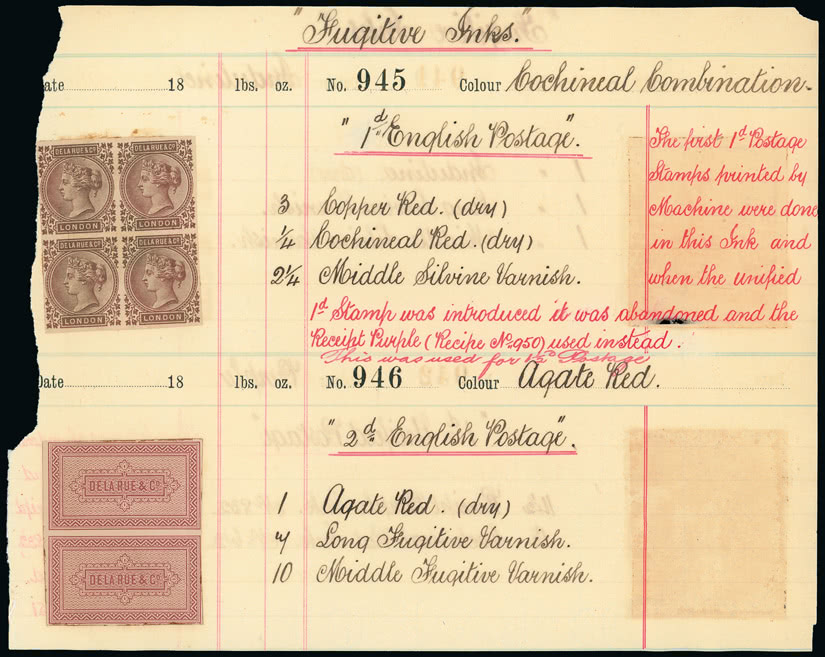 "Fugitive Inks."
ate 18 lbs. oz. No. 945 Colour Cochineal Combination.
"1d English Postage".
DE LA RUE & Co. DE LA RUE & Co.
LONDON LONDON
DE LA RUE & Co. DE LA RUE & Co.
LONDON LONDON
3 Copper Red. (dry)
¼ Cochineal Red. (dry)
2¼ Middle Silvine Varnish.
The first 1d Postage
Stamps printed by
Machine were done
in this Ink and
when the unified
1d Stamp was introduced it was abandoned and the
Receipt Purple (Recipe No. 950) used instead.
This was used for 1½d Postage
Date 18 lbs. oz. No. 946 Colour Agate Red.
"2d English Postage".
DE LA RUE & Co.
DE LA RUE & Co.
1 Agate Red. (dry)
7 Long Fugitive Varnish.
10 Middle Fugitive Varnish.